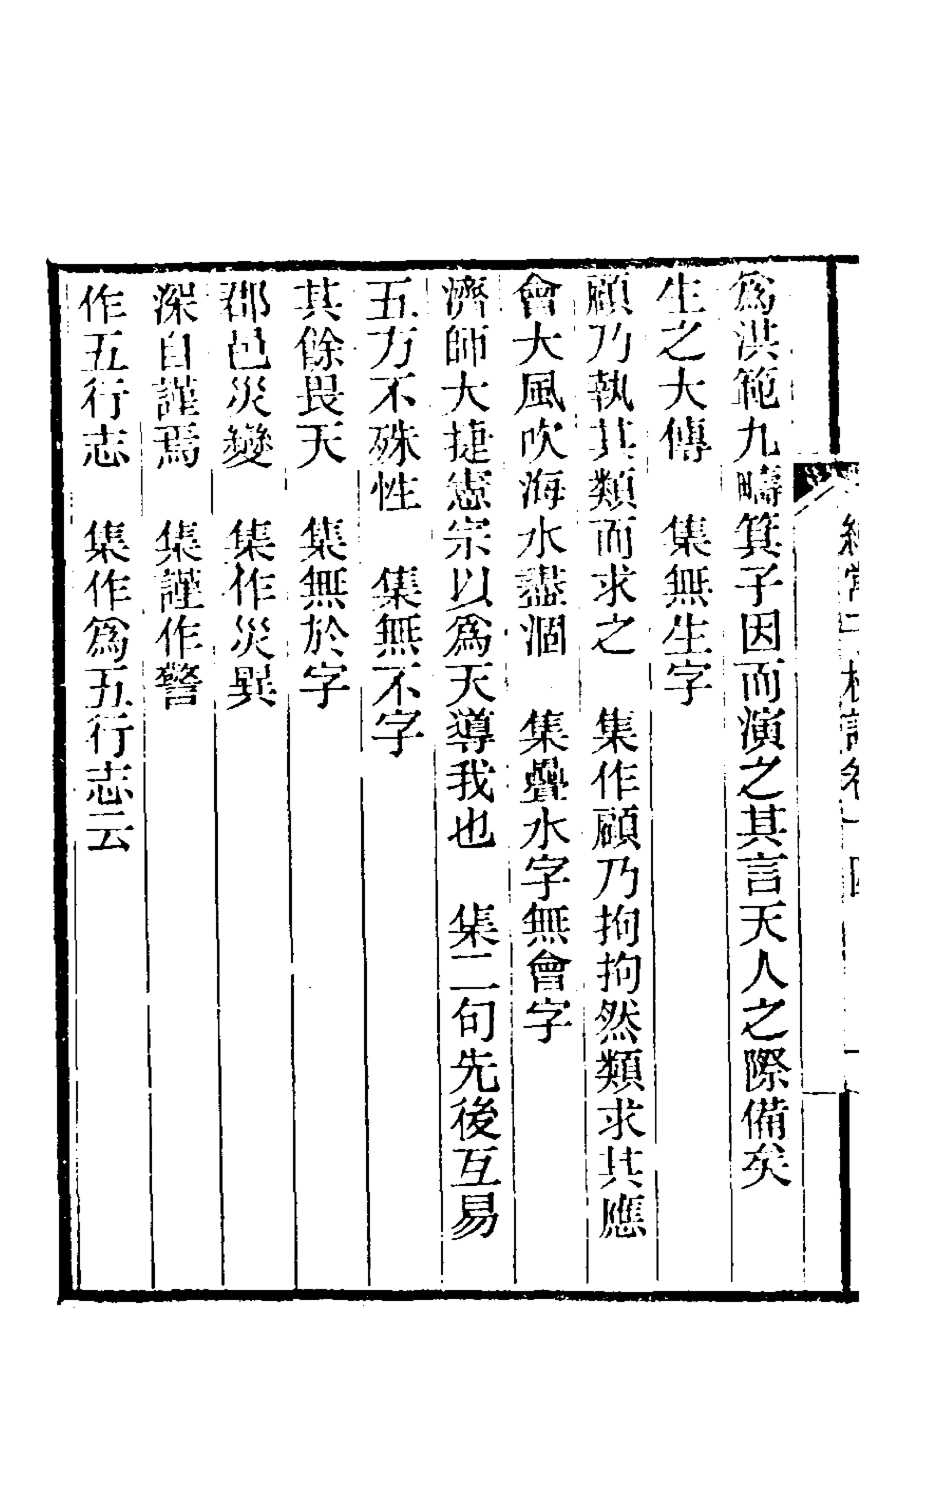 爲洪範九疇箕子因而演之其言天人之際備矣
生之大傳　集無生字
顧乃執其類而求之　集作顧乃拘拘然類求其應
會大風吹海水盡涸　集疊水字無會字
濟師大捷憲宗以爲天導我也　集二句先後互易
五方不殊性　集無不字
其餘畏天　集無於字
郡邑災變　集作災異
深自謹焉　集謹作警
作五行志　集作爲五行志云